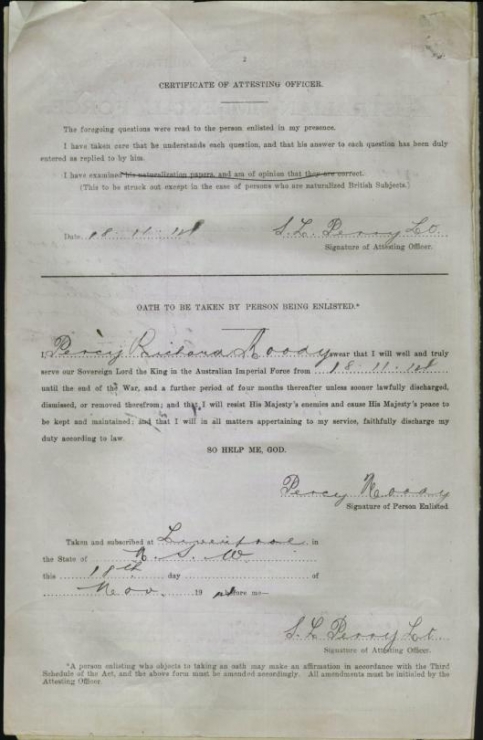 2
CERTIFICATE OF ATTESTING OFFICER.
The foregoing questions were read to the person enlisted in my presence.
I have taken care that he understands each question, and that his answer to each question has been duly
entered as replied to by him.
I have examined his naturalization papers, and am of opinion that they are correct.
(This to be struck out except in the case of persons who are naturalized British Subjects.)
Date 18 11 S. L. Perry Lt
Signature of Attesting Officer.
OATH TO BE TAKEN BY PERSON BEING ENLISTED.*
I, Percy Richard Moody swear that I will well and truly
serve our Sovereign Lord the King in the Australian Imperial Force from 18 . 11 .
until the end of the War, and a further period of four months thereafter unless sooner lawfully discharged,
dismissed, or removed therefrom; and that I will resist His Majesty's enemies and cause His Majesty's peace to
be kept and maintained; and that I will in all matters appertaining to my service, faithfully discharge my
duty according to law.
SO HELP ME, GOD.
Percy Moody
Signature of Person Enlisted.
Taken and subscribed at Liverpool in
the State of N. S. W.
this 18th day of
Nov 19 before me—
S. L Perry Lt.
Signature of Attesting Officer.
*A person enlisting who objects to taking an oath may make an affirmation in accordance with the Third
Schedule of the Act, and the above form must be amended accordingly. All amendments must be initialed by the
Attesting Officer.